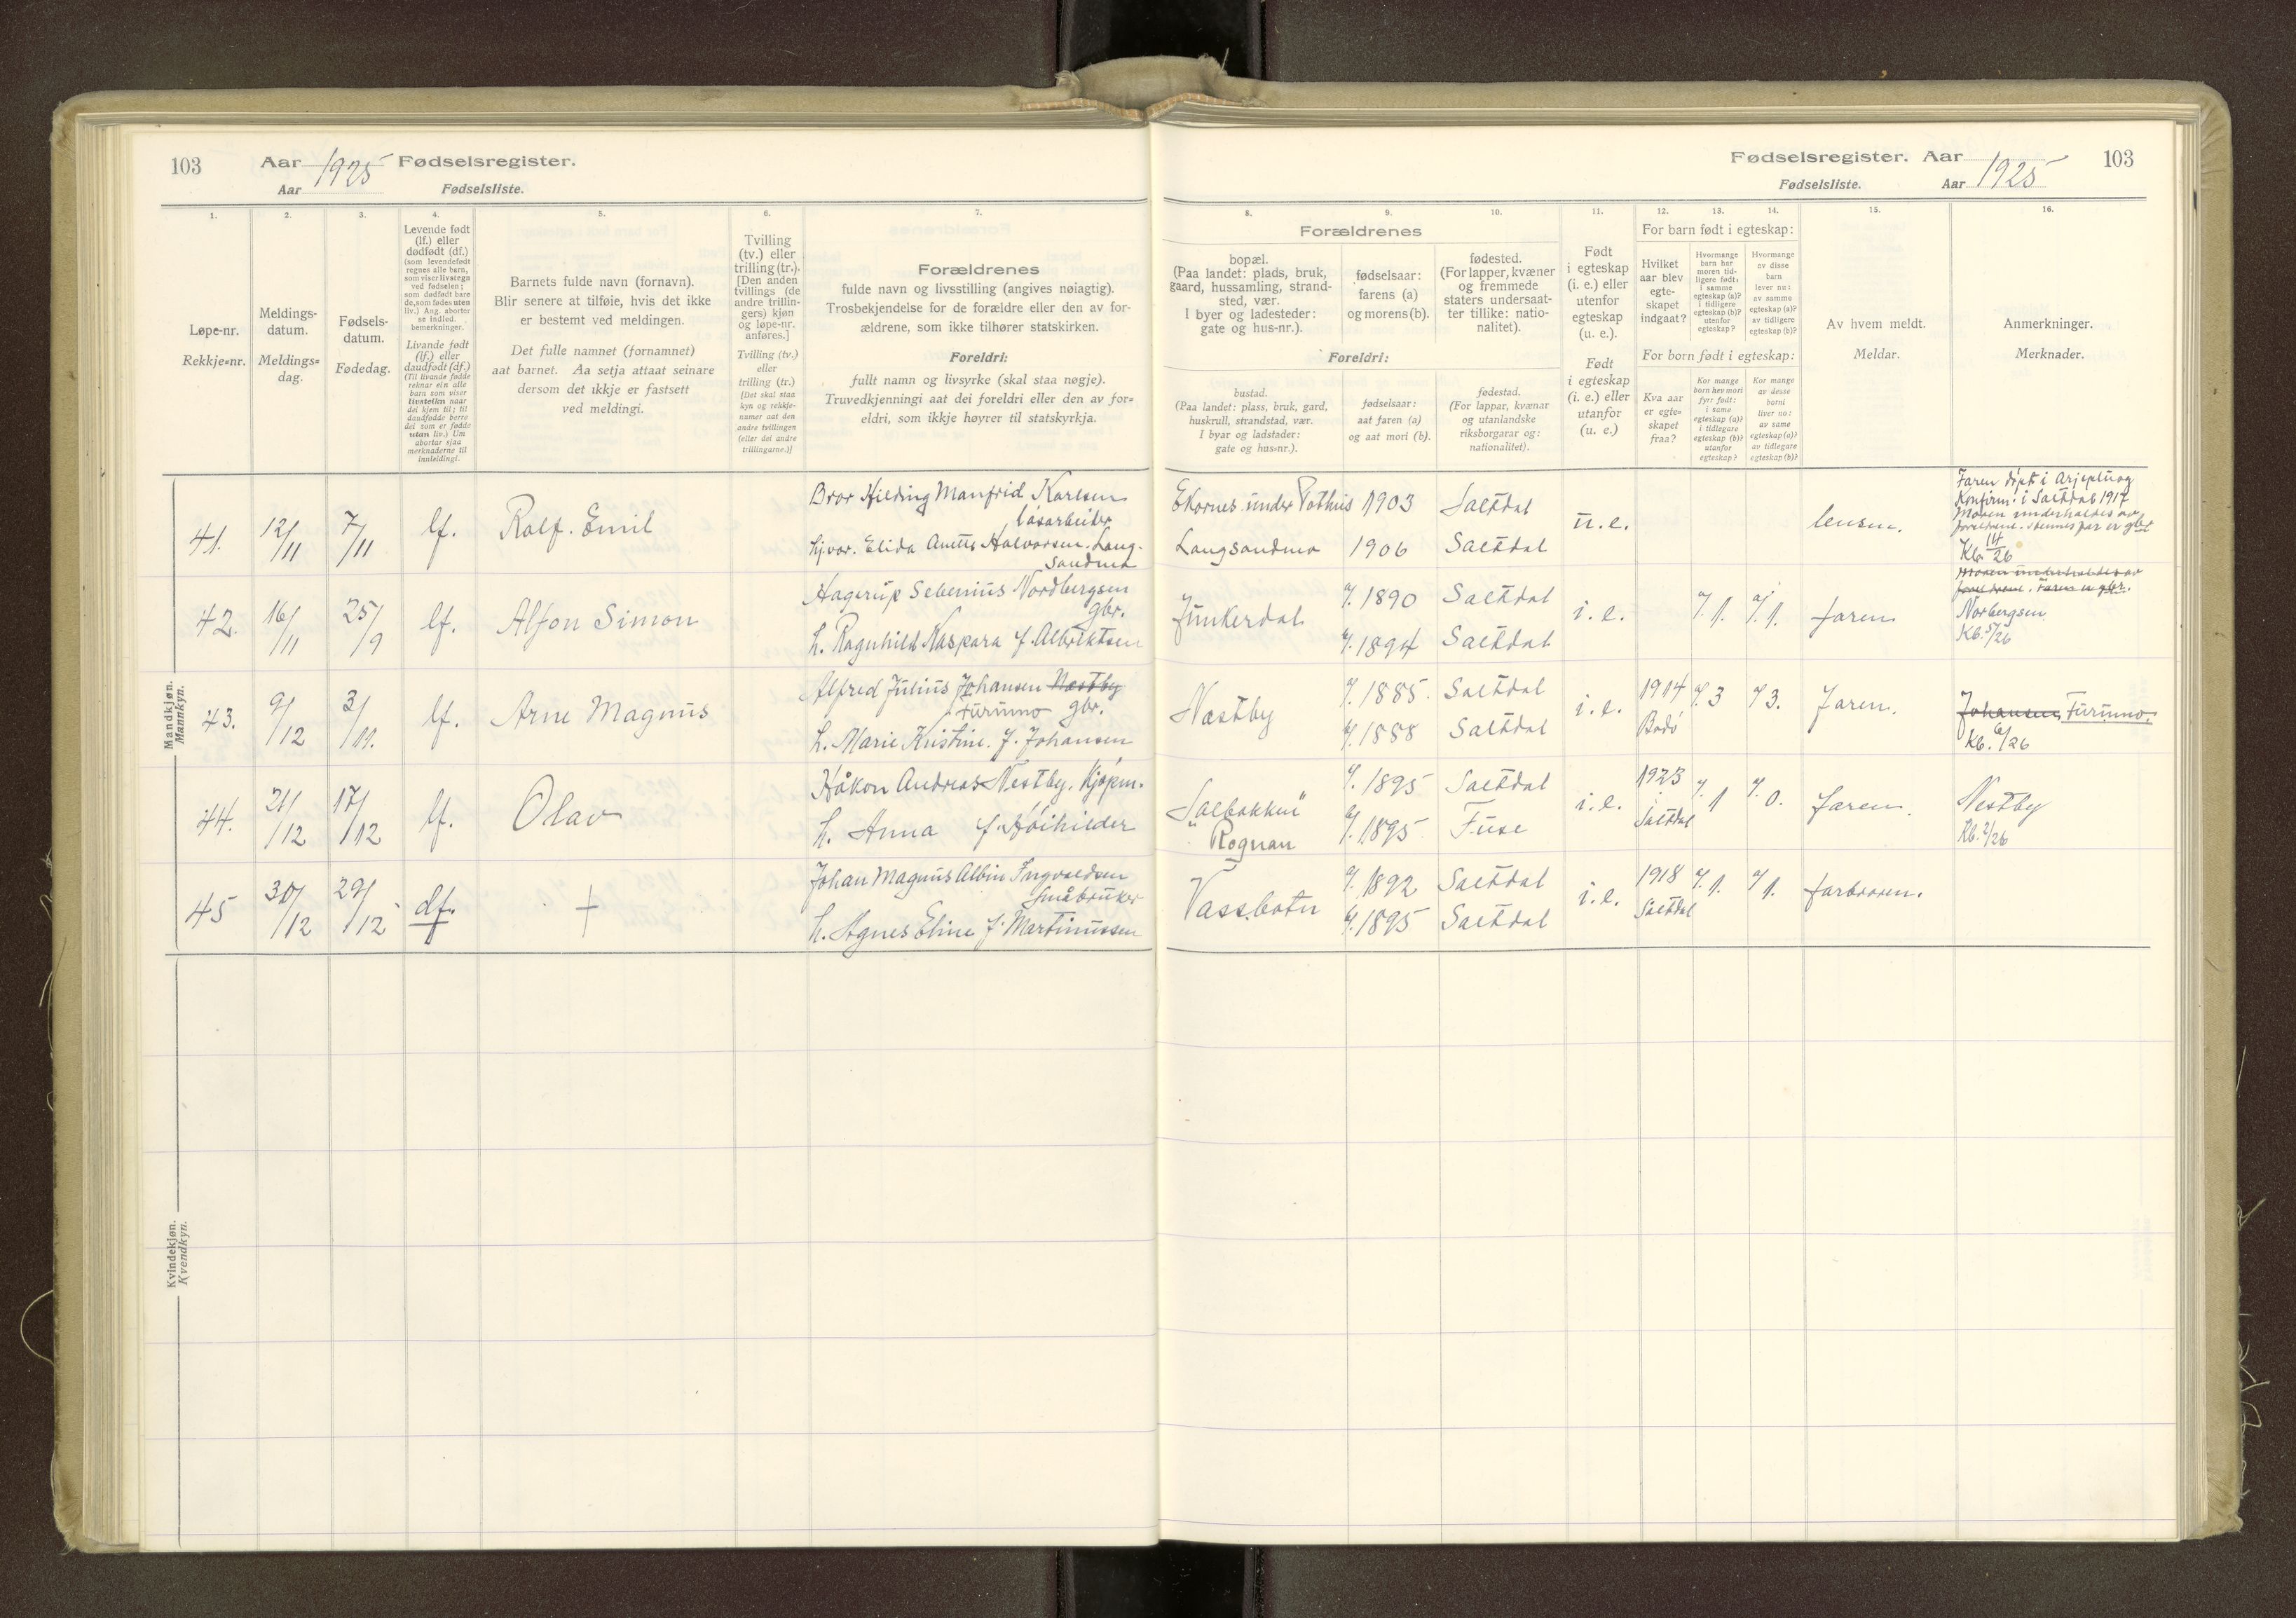 103 Aar 1925 Fødselsregister.
Aar Fødselsliste.
Fødselsregister. Aar 1925 103
Fødselsliste. Aar
1. 2. 3. 4. 5. 6. 7.
Løpe-nr.
Rekkje=nr.
Meldings-
datum.
Meldings=
dag.
Fødsels-
datum.
Fødedag.
Levende født
(lf.) eller
dødfødt (df.)
(som levendefødt
regnes alle barn,
som viser livstegn
ved fødselen;
som dødfødt bare
de, som fødes uten
liv.) Ang. aborter
se indled.
bemerkninger.
Livande født
(lf.) eller
daudfødt (df.)
(Til livande fødde
reknar ein alle
barn som viser
livsteikn naar
dei kjem til; til
daudfødde berre
dei som er fødde
utan liv.) Um
abortar sjaa
merknaderne til
innleidingi.
Barnets fulde navn (fornavn).
Blir senere at tilføie, hvis det ikke
er bestemt ved meldingen.
Det fulle namnet (fornamnet)
aat barnet. Aa setja attaat seinare
dersom det ikkje er fastsett
ved meldingi.
Tvilling
(tv.) eller
trilling (tr.).
[Den anden
tvillings (de
andre trillin-
gers) kjøn
og løpe-nr.
anføres.]
Tvilling (tv.)
eller
trilling (tr.)
[Det skal staa
kyn og rekkje-
numer aat den
andre tvillingen
(eller dei andre
trillingarne.)]
Forældrenes
fulde navn og livsstilling (angives nøiagtig).
Trosbekjendelse for de forældre eller den av for-
ældrene, som ikke tilhører statskirken.
Foreldri:
fullt namn og livsyrke (skal staa nøgje).
Truvedkjenningi aat dei foreldri eller den av for=
eldri, som ikkje høyrer til statskyrkja.
8. 9. 10. 11. 12. 13. 14. 15. 16.
Forældrenes
bopæl.
(Paa landet: plads, bruk,
gaard, hussamling, strand-
sted, vær.
I byer og ladesteder:
gate og hus-nr.).
fødselsaar:
farens (a)
og morens (b).
fødested.
(For lapper, kvæner
og fremmede
staters undersaat-
ter tillike: natio-
nalitet).
Foreldri:
bustad.
(Paa landet: plass, bruk, gard,
huskrull, strandstad, vær.
I byar og ladstader:
gate og hus=nr.).
fødselsaar:
aat faren (a)
og aat mori (b).
fødestad.
(For lappar, kvænar
og utanlandske
riksborgarar og:
nationalitet).
Født
i egteskap
(i. e.) eller
utenfor
egteskap
(u. e.).
Født
i egteskap
(i. e.) eller
utanfor
(u. e.)
For barn født i egteskap:
Hvilket
aar blev
egte-
skapet
indgaat?
Hvormange
barn har
moren tid-
ligere født:
i samme
egteskap (a)?
i tidligere
egteskap (b)?
utenfor
egteskap?
Hvormange
av disse
barn
lever nu:
av samme
egteskap (a)?
av tidligere
egteskap (b)?
For born født i egteskap:
Kva aar
er egte=
skapet
fraa?
Kor mange
born hev mori
fyrr født:
i same
egteskap (a)?
i tidlegare
egteskap (b)?
utanfor
egteskap?
Kor mange
av desse
borni
liver no:
av same
egteskap (a)?
av tidlegare
egteskap (b)?
Av hvem meldt.
Meldar.
Anmerkninger.
Merknader.
Mandkjøn.
Mannkyn.
41. 12/11 7/11 lf. Ralf. Emil
Bror Hilding Manfrid Karlsen
løsarbeider
hj.var. Elida Anette Halvorsen. Lang-
sandmo
Ekornes under Pothus 1903 Saltdal
Langsandmo 1906 Saltdal
u.e. lensm.
Faren døpt i Arjepluog
Konfirm. i Saltdal 1917
Moren underholdes av
foreldrene. Hennes far er gbr
Kb. 14/26
42. 16/11 25/9 lf. Alfon Simon
Hagerup Sebenius Nordbergsen
gbr.
h. Ragnhild Kaspara f. Albriktsen
Junkerdal
a/. 1890 Saltdal
b/. 1894 Saltdal
i.e. a/. 1. a/. 1. faren
Moren underholdes av
foreldrene. Faren er gbr.
Norbergsen
Kb. 5/26
43. 9/12 3/11. lf. Arne Magnus
Alfred Julius Johansen Næstby
Furumo gbr.
h. Marie Kristine. f. Johansen
Næstby
a/. 1885. Saltdal
b/. 1888 Saltdal
i.e. 1914 Bodø a/. 3 a/ 3. Faren.
Johansen, Furumo.
Kb. 6/26
44. 21/12 17/12 lf. Olav
Håkon Andreas Nestby. Kjøpm.
h. Anna f. Høihilder
"Solbakken"
Rognan
a/. 1895 Saltdal
b/. 1895 Fuse
i.e. 1923 Saltdal a/. 1 a/. 0. faren.
Nestby
Kb. 2/26
45 30/12 29/12 df. +
Johan Magnus Albin Ingvaldsen
Småbruker
h. Agnes Eline f. Martinussen
Vassbotn
a/. 1892 Saltdal
b/. 1895 Saltdal
i.e. 1918 Saltdal a/. 1. a/ 1. farbroren.
Kvindekjøn.
Kvendkyn.